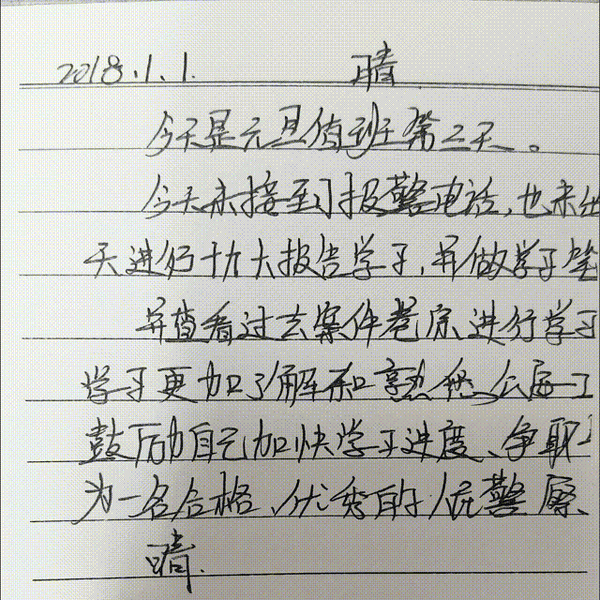 2018.1.1. 晴
今天是元旦值班第三天。
今天未接到报警电话,也未出
天进行十九大报告学习,并做学习笔
并查看过去案件卷宗进行学习
学习更加了解和熟悉公居一工
鼓励自己加快学习进度、争取
为一名合格、优秀的人民警
晴.